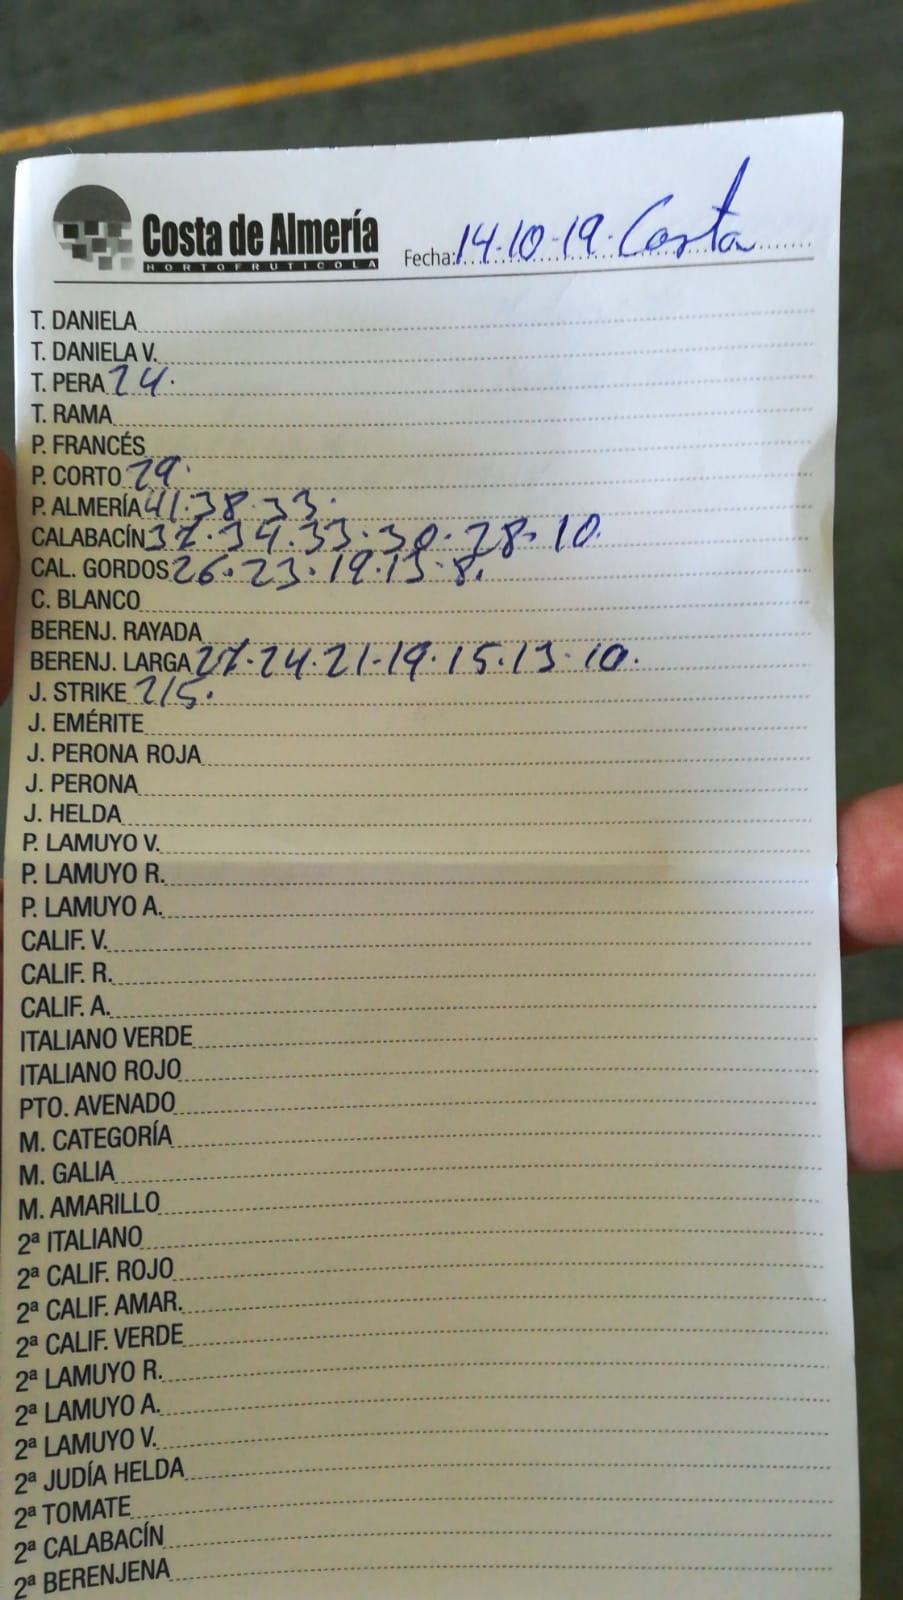 Costa de Almería
HORTOFRUTICOLA
Fecha: 14.10.19. Costa
T. DANIELA
T. DANIELA V.
T. PERA 24.
T. RAMA
P. FRANCÉS
P. CORTO 29.
P. ALMERÍA 41.38.33.
CALABACÍN 37.34.33.30.28.10.
CAL. GORDOS 26.23.19.13.8.
C. BLANCO
BERENJ. RAYADA
BERENJ. LARGA 27.24.21.19.15.13.10.
J. STRIKE 215.
J. EMÉRITE
J. PERONA ROJA
J. PERONA
J. HELDA
P. LAMUYO V.
P. LAMUYO R.
P. LAMUYO A.
CALIF. V.
CALIF. R.
CALIF. A.
ITALIANO VERDE
ITALIANO ROJO
PTO. AVENADO
M. CATEGORÍA
M. GALIA
M. AMARILLO
2ª ITALIANO
2ª CALIF. ROJO
2ª CALIF. AMAR.
2ª CALIF. VERDE
2ª LAMUYO R.
2ª LAMUYO A.
2ª LAMUYO V.
2ª JUDÍA HELDA
2ª TOMATE
2ª CALABACÍN
2ª BERENJENA